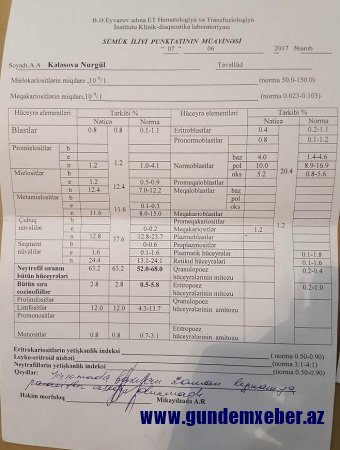 B.Ə.Eyvazov adına ET Hematologiya və Transfuziologiya
İnstitutu Klinik-diaqnostika laboratoriyası
SÜMÜK İLİYİ PUNKTATININ MÜAYİNƏSİ
" 07 " 06 2017 №amb
Soyadı.A.A Kələsova Nurgül Təvəllüd
Mielokariositlərin miqdarı,10⁹/l (norma 50.0-150.0)
Meqakariositlərin miqdarı,10⁹/l (norma 0.023-0.103)
Hüceyrə elementləri Tərkibi % Hüceyrə elementləri Tərkibi %
Nəticə Norma Nəticə Norma
Blastlar 0.8 0.8 0.1-1.1 Eritroblastlar 0.4 0.2-1.1
Pronormoblastlar 0.1-1.2
Promielositlər b
e Normoblastlar baz 4.0 20.4 1.4-4.6
n 1.2 1.2 1.0-4.1 pol 10.0 8.9-16.9
Mielositlər b oks 5.2 0.8-5.6
e 12.4 0.5-0.9 Promeqaloblastlar
n 12.4 7.0-12.2 Meqaloblastlar baz
Metamielositlər b pol
e 11.6 0.1-0.3 oks
n 11.6 8.0-15.0 Meqakarioblastlar
Çubuq nüvəlilər b Promeqakariositlər
e 0-0.2 Meqakariositlər 1.2 1.2
n 12.8 37.6 12.8-23.7 Plazmoblastlar
Seqment nüvəlilər b 0-0.6 Proplazmositlər
e 1.6 0.1-1.6 Plazmatik hüceyrələr 0.1-1.8
n 24.4 13.1-24.1 Retikul hüceyrələri 0.1-1.6
Neytrofil sıranın bütün hüceyrələri 63.2 63.2 52.0-68.0 Qranulopoez hüceyrələrinin mitozu 0.2-0.4
Bütün sıra eozinofillər 2.8 2.8 0.5-5.8 Eritropoez hüceyrələrinin mitozu 0.2-1.0
Prolimfositlər
Limfositlər 12.0 12.0 4.3-13.7 Qranulopoez hüceyrələrinin amitozu
Promonositlər
Monositlər 0.8 0.8 0.7-3.1 Eritropoez hüceyrələrinin amitozu
Eritrokariositlərin yetişkənlik indeksi (norma 0.50-0.90)
Leyko-eritroid nisbəti (norma 3:1-4:1)
Neytrofillərin yetişkənlik indeksi (norma 0.50-0.90)
Qeydlər:
Həkim morfoloq Mikayılzadə A.R
www.gundemxeber.az